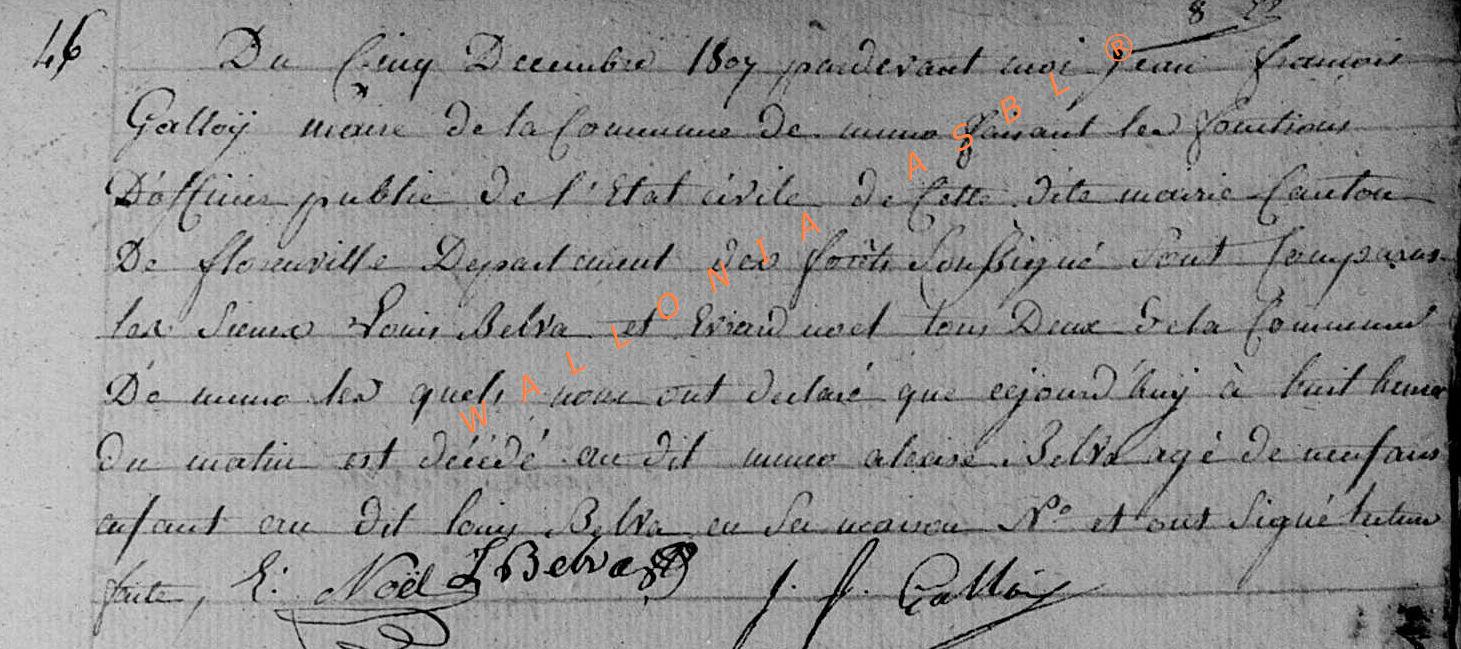 46
Du Cinq Decembre 1807 pardevant moi Jean françois
Galloÿ maire de la Commune de muno faisant les fonctions
D'officier public de l'Etat civile de Cette dite mairie Canton
De florenville Departement des forêts Soussigné Sont Comparus
les Sieurs Louis Belva et Evrard noel tous Deux de la Commune
De muno les quels nous ont declaré que cejourd'huy à huit heures
du matin est décédé au dit muno alexise Belva agé de neuf ans
enfant au dit louis Belva en Sa maison N° et ont Signé lecture
faite, E: Noël L Belva J. f. Galloÿ
WALLONIA ASBL ®